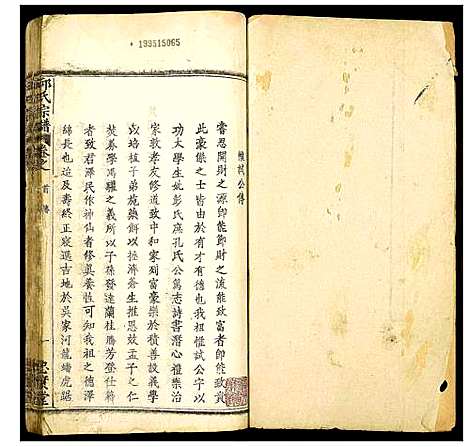 193515065
惟試公傳
睿思開財之源節能節財之流能致富者卽能致貴
此豪傑之士皆由於有才有德也我祖惟試公字以
功太學生妣彭氏庶孔氏公篤志詩書潛心禮樂治
家敦孝友修道致中和家列富豪樂於積善設義學
以培植子弟施藥餌以拯濟蒼生推恩效孟子之仁
焚券學馮驩之義所以子孫發達蘭桂騰芳登仕籍
者致君澤民作神仙者修眞養性可知我祖之德澤
綿長也迨及壽終正寢遷吉地於吳家河龍蟠虎踞
邱氏宗譜
卷之
首 傳
一
忠實堂